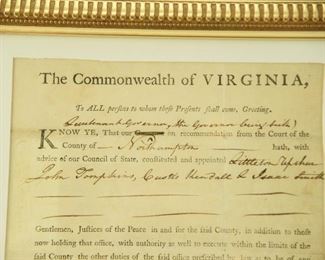 The Commonwealth of VIRGINIA,
To ALL persons to whom these Presents shall come, Greeting.
Lieutenant Governor, the Governor being sick)
KNOW YE, That our on recommendation from the Court of the
County of Northampton hath, with
advice of our Council of State, constituted and appointed Littleton Upshur
John Tompkins, Custis Kendall & Isaac Smith
Gentlemen, Justices of the Peace in and for the said County, in addition to those
now holding that office, with authority as well to execute within the limits of the
said County the other duties of the said office prescribed by law as to be of any